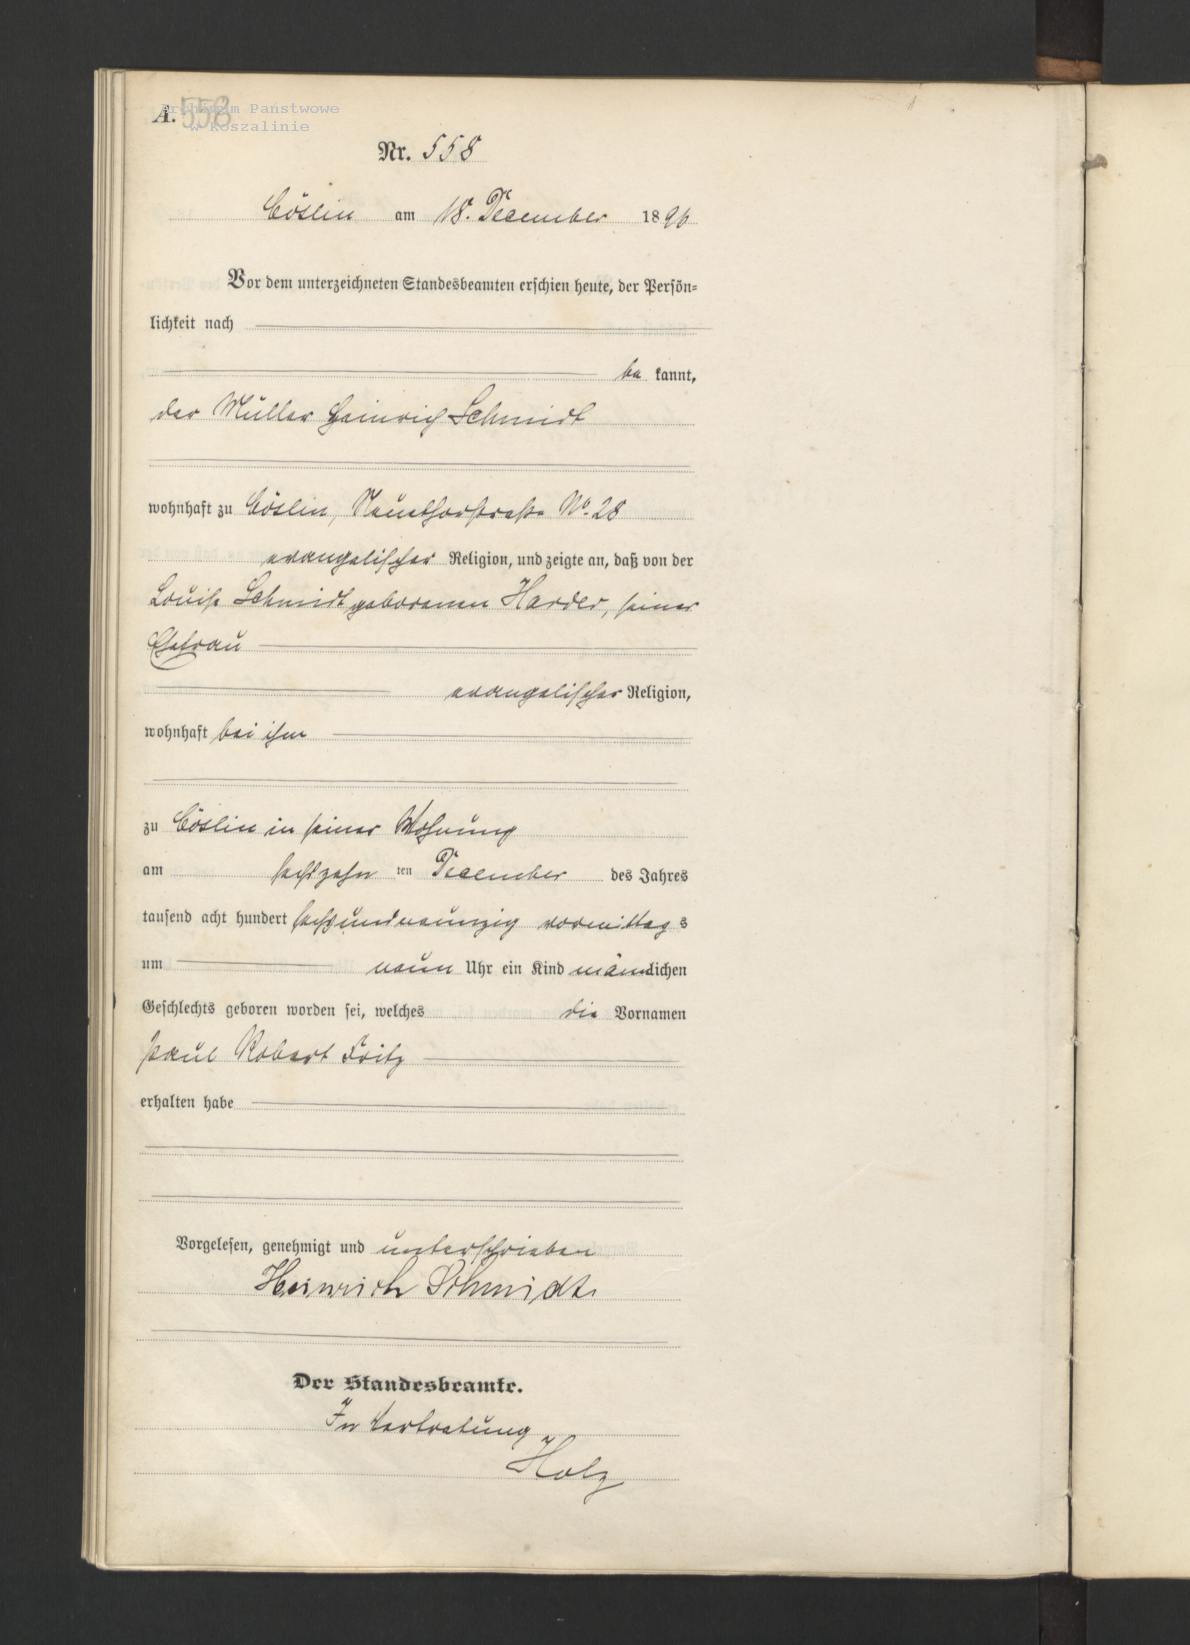 A. 558
Archiwum Państwowe
w Koszalinie
Nr. 558
Cöslin am 18. December 1896
Vor dem unterzeichneten Standesbeamten erschien heute, der Persön-
lichkeit nach
be kannt,
der Müller Heinrich Schmidt
wohnhaft zu Cöslin, Neuethorstraße No. 28
evangelischer Religion, und zeigte an, daß von der
Louise Schmidt geborenen Harder, seiner
Ehefrau
evangelischer Religion,
wohnhaft bei ihm
zu Cöslin in seiner Wohnung
am sechszehn ten December des Jahres
tausend acht hundert sechsundneunzig vormittags
um neun Uhr ein Kind männlichen
Geschlechts geboren worden sei, welches die Vornamen
Paul Robert Fritz
erhalten habe
Vorgelesen, genehmigt und unterschrieben
Heinrich Schmidt
Der Standesbeamte.
In Vertretung
Holz